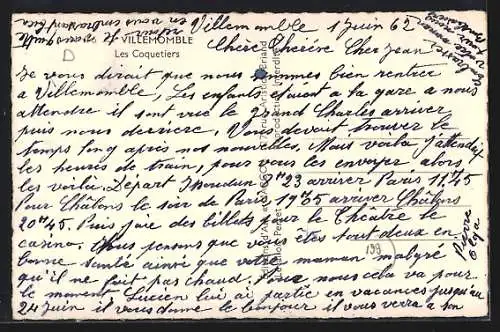 Villemomble 1 Juin 62
VILLEMOMBLE
Les Coquetiers
Chère Cher Jean
Je vous dirait que nous sommes bien rentrer
a Villemomble, Les enfants étaient a la gare a nous
attendre il sont vue le Grand Charles arriver
puis nous derriere. Vous devait trouver le
temps long après nos nouvelles. Mais voila j'attendez
les heures de train, pour vous les envoyer alors
les voila. Départ Issoudun 8h23 arriver Paris 11h45
Pour Châlons le soir de Paris 19h05 arriver Châlons
20h45. Puis j'aie des billets pour le Théatre le
casino. Nous pensons que vous êtes tout deux en
bonne santé ainsi que votre maman malgré
qu'il ne fait pas chaud. Pour nous cela va pour
le moment. Lucien lui ai partie en vacances jusqu'au
24 Juin il vous donne le bonjour il vous verra a son
Pierre
Olga
199